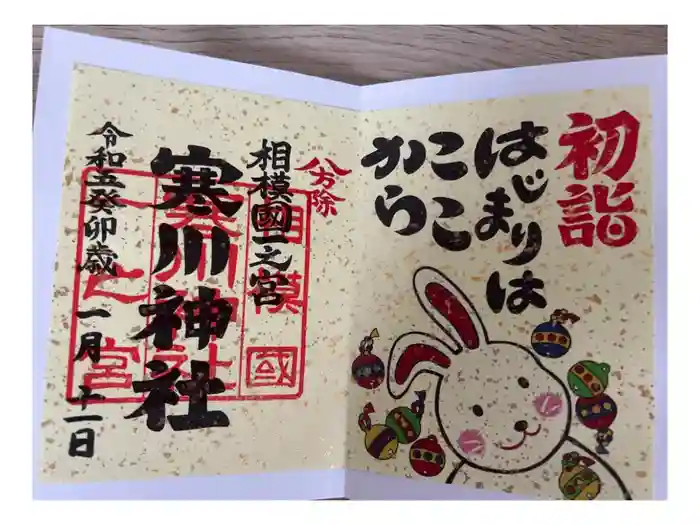 初詣
はじまりは
ここ
から
八方除
相模國一之宮
寒川神社
令和五癸卯歳
一月十一日
相模國
一之宮